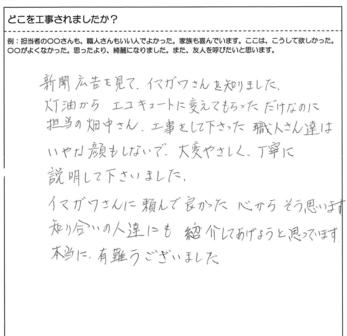 どこを工事されましたか？
例：担当者の〇〇さんも、職人さんもいい人でよかった。家族も喜んでいます。ここは、こうして欲しかった。
〇〇がよくなかった。思ったより、綺麗になりました。また、友人を呼びたいと思います。
新聞広告を見て、イマガワさんを知りました。
灯油から エコキュートに変えてもらっただけなのに
担当の畑中さん、工事をして下さった 職人さん達は
いやな顔もしないで、大変やさしく、丁寧に
説明して下さいました。
イマガワさんに 頼んで良かった 心から そう思います
知り合いの人達にも 紹介してあげようと思っています
本当に、有難うございました